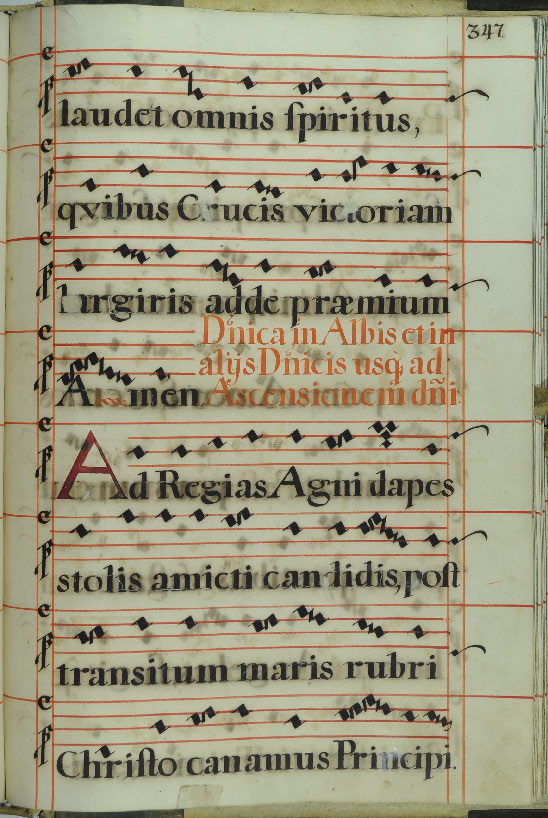 347
laudet omnis ſpiritus,
qvibus Crucis victoriam
largiris adde præmium
Dñica in Albis et in
alijs Dñicis usq; ad
Amen Ascensionem dñi
Ad Regias Agni dapes
stolis amicti candidis, poſt
transitum maris rubri
Chriſto canamus Principi.